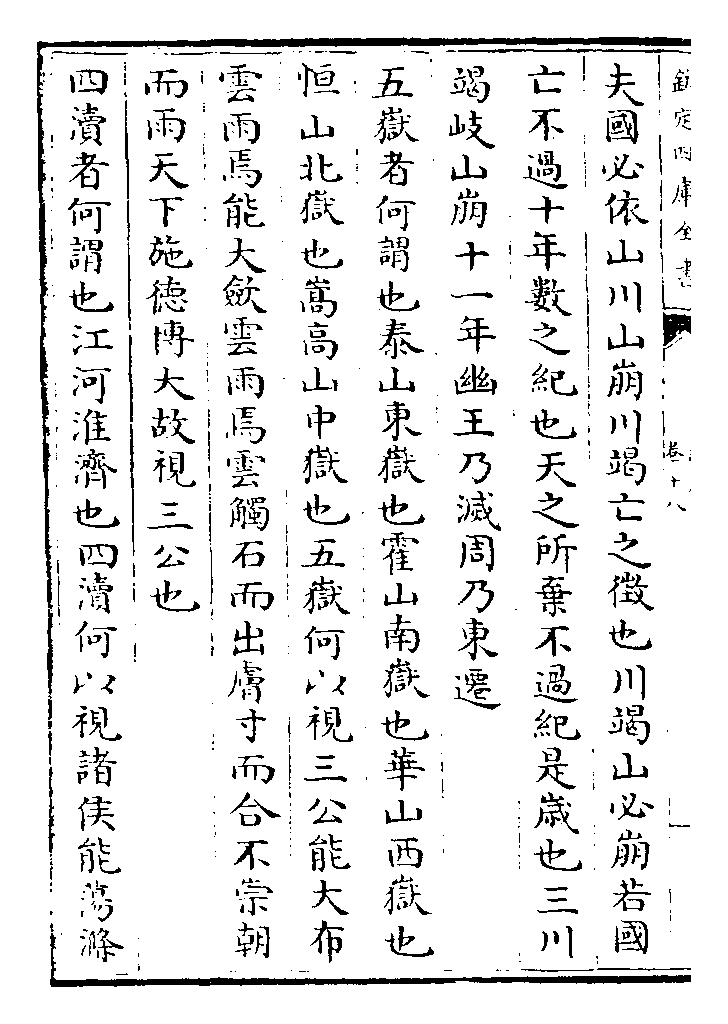 欽定四庫全書
卷十八
夫國必依山川山崩川竭亡之徴也川竭山必崩若國
亡不過十年數之紀也天之所棄不過紀是嵗也三川
竭岐山崩十一年幽王乃滅周乃東遷
五嶽者何謂也泰山東嶽也霍山南嶽也華山西嶽也
恒山北嶽也嵩高山中嶽也五嶽何以視三公能大布
雲雨焉能大歛雲雨焉雲觸石而出膚寸而合不崇朝
而雨天下施德博大故視三公也
四瀆者何謂也江河淮濟也四瀆何以視諸侯能蕩滌